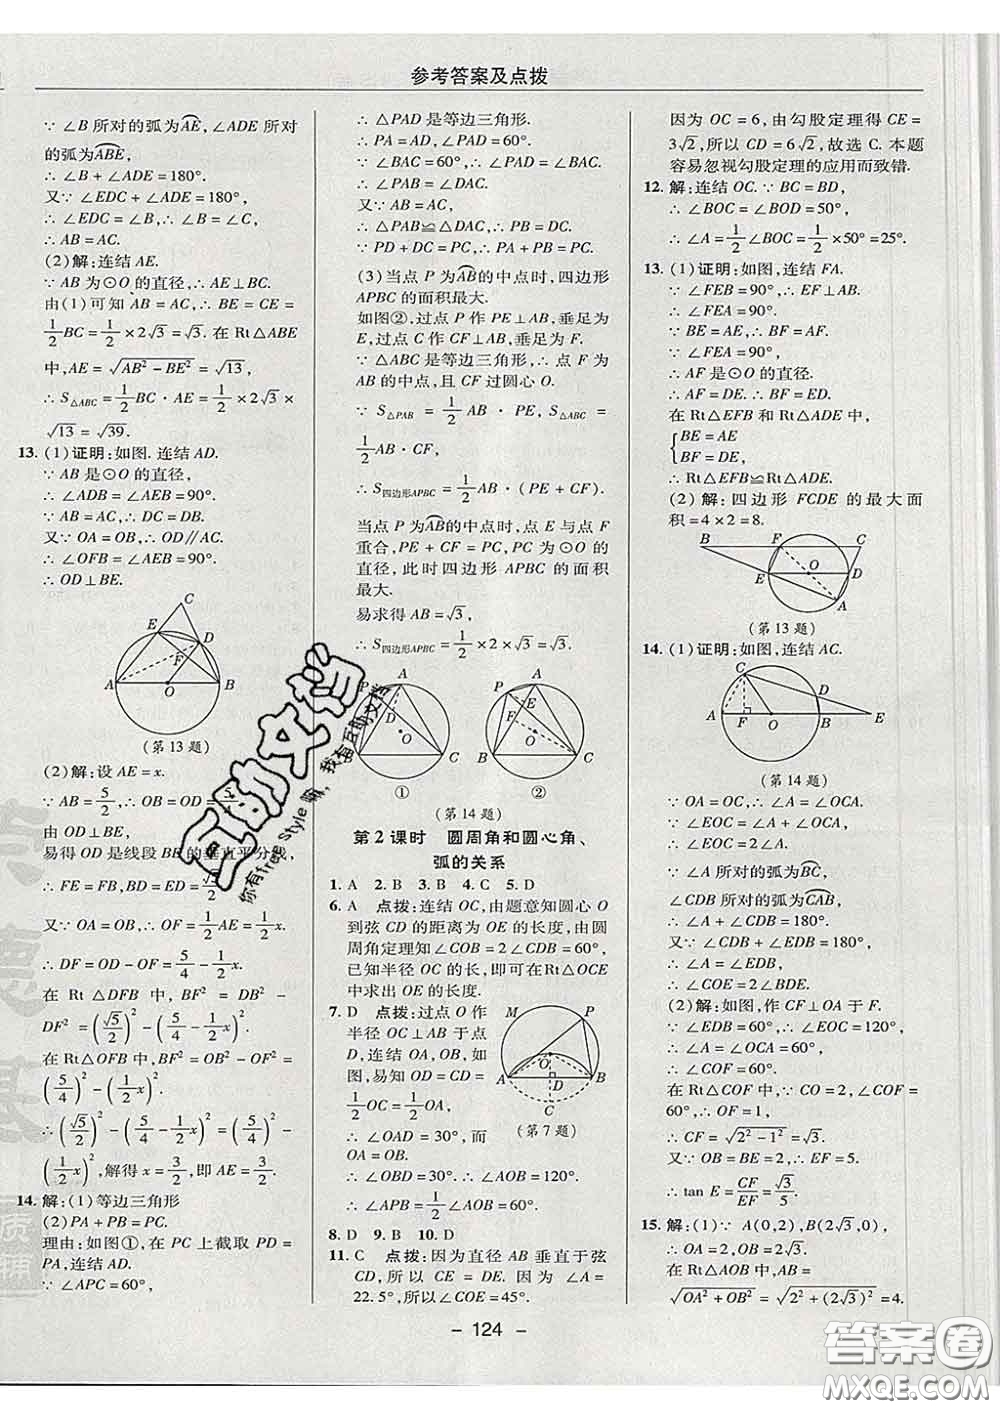 参考答案及点拨
∵ ∠B所对的弧为AE,∠ADE所对
的弧为ABE,
∴ ∠B + ∠ADE = 180°.
又∵ ∠EDC + ∠ADE = 180°,
∴ ∠EDC = ∠B,∴ ∠B = ∠C,
∴ AB = AC.
(2)解:连结 AE.
∵ AB 为⊙O 的直径,∴ AE⊥BC.
由(1)可知 AB = AC,∴ BE = CE =
1/2 BC = 1/2 × 2√3 = √3. 在 Rt△ABE
中,AE = √(AB² - BE²) = √13,
∴ S△ABC = 1/2 BC · AE = 1/2 × 2√3 ×
√13 = √39.
13. (1)证明:如图. 连结 AD.
∵ AB 是⊙O 的直径,
∴ ∠ADB = ∠AEB = 90°.
∵ AB = AC,∴ DC = DB.
又∵ OA = OB,∴ OD∥AC.
∴ ∠OFB = ∠AEB = 90°,
∴ OD⊥BE.
C
E
D
F
A
O
B
(第 13 题)
(2)解:设 AE = x.
∵ AB = 5/2,∴ OB = OD = 5/4.
易得 OD 是线段 BE 的垂直平分线,
∴ FE = FB,BD = ED = √5/2.
又∵ OA = OB,∴ OF = 1/2 AE = 1/2 x.
∴ DF = OD - OF = 5/4 - 1/2 x.
在 Rt △DFB 中, BF² = DB² -
DF² = (√5/2)² - (5/4 - 1/2 x)²,
在 Rt△OFB 中,BF² = OB² - OF² =
(5/4)² - (1/2 x)²,
∴ (√5/2)² - (5/4 - 1/2 x)² = (5/4)² -
(1/2 x)²,解得 x = 3/2,即 AE = 3/2.
14. 解:(1)等边三角形
(2)PA + PB = PC.
理由:如图①,在 PC 上截取 PD =
PA,连结 AD.
∵ ∠APC = 60°,
∴ △PAD 是等边三角形.
∴ PA = AD,∠PAD = 60°.
∵ ∠BAC = 60°,∴ ∠PAD = ∠BAC,
∴ ∠PAB = ∠DAC.
又∵ AB = AC,
∴ △PAB≌△DAC,∴ PB = DC.
∵ PD + DC = PC,∴ PA + PB = PC.
(3)当点 P 为AB的中点时,四边形
APBC 的面积最大.
如图②,过点 P 作 PE⊥AB,垂足为
E,过点 C 作 CF⊥AB,垂足为 F.
∵ △ABC 是等边三角形,∴ 点 F 为
AB 的中点,且 CF 过圆心 O.
∵ S△PAB = 1/2 AB · PE, S△ABC =
1/2 AB · CF,
∴ S四边形APBC = 1/2 AB · (PE + CF).
当点 P 为AB的中点时,点 E 与点 F
重合,PE + CF = PC,PC 为⊙O 的
直径,此时四边形 APBC 的面积
最大.
易求得 AB = √3,
∴ S四边形APBC = 1/2 × 2 × √3 = √3.
P
A
D
O
B
C
①
P
A
E
F
O
B
C
②
(第 14 题)
第 2 课时 圆周角和圆心角、
弧的关系
1. A 2. B 3. B 4. C 5. D
6. A 点拨:连结 OC,由题意知圆心 O
到弦 CD 的距离为 OE 的长度,由圆
周角定理知∠COB = 2∠CDB = 60°,
已知半径 OC 的长,即可在Rt△OCE
中求出 OE 的长度.
7. D 点拨:过点 O 作
半径 OC⊥AB 于点
D,连结 OA,OB,如
图,易知 OD = CD =
1/2 OC = 1/2 OA,
∴ ∠OAD = 30°,而
OA = OB,
M
P
O
A
D
B
C
(第 7 题)
∴ ∠OBD = 30°,∴ ∠AOB = 120°,
∴ ∠APB = 1/2 ∠AOB = 60°.
8. D 9. B 10. D
11. C 点拨:因为直径 AB 垂直于弦
CD,所以 CE = DE. 因为 ∠A =
22. 5°,所以∠COE = 45°.
因为 OC = 6,由勾股定理得 CE =
3√2,所以 CD = 6√2,故选 C. 本题
容易忽视勾股定理的应用而致错.
12. 解:连结 OC. ∵ BC = BD,
∴ ∠BOC = ∠BOD = 50°,
∴ ∠A = 1/2 ∠BOC = 1/2 × 50° = 25°.
13. (1)证明:如图,连结 FA.
∵ ∠FEB = 90°,∴ ∠FEA = 90°,
∴ ∠FEA = 90°.
∵ BE = AE,∴ BF = AF.
∵ ∠FEA = 90°,
∴ AF 是⊙O 的直径.
∴ AF = DE. ∴ BF = DE.
在 Rt△EFB 和 Rt△ADE 中,
{ BE = AE
BF = DE.
∴ Rt△EFB≌Rt△ADE.
(2) 解:四边形 FCDE 的最大面
积 = 4 × 2 = 8.
B
F
C
E
O
D
A
(第 13 题)
14. (1)证明:如图,连结 AC.
C
D
A
F
O
B
E
(第 14 题)
∵ OA = OC,∴ ∠A = ∠OCA.
∴ ∠EOC = ∠A + ∠OCA,
∴ ∠EOC = 2∠A.
∵ ∠A 所对的弧为BC,
∠CDB 所对的弧为CAB,
∴ ∠A + ∠CDB = 180°.
又∵ ∠CDB + ∠EDB = 180°,
∴ ∠A = ∠EDB,
∴ ∠EOC = 2∠EDB.
(2)解:如图,作 CF⊥OA 于 F.
∵ ∠EDB = 60°,∴ ∠EOC = 120°,
∴ ∠A = ∠OCA = 60°,
∴ ∠COF = 60°.
在 Rt△COF 中,∵ CO = 2,∠COF =
60°,∴ OF = 1,
∴ CF = √(2² - 1²) = √3.
又∵ OB = BE = 2,∴ EF = 5.
∴ tan E = CF/EF = √3/5.
15. 解:(1)∵ A(0,2),B(2√3,0),
∴ OA = 2,OB = 2√3.
在 Rt△AOB 中,AB =
√(OA² + OB²) = √(2² + (2√3)²) = 4.
- 124 -
互助文档
你有free Style嘛,我有互助文档
答案圈
MXQE.COM